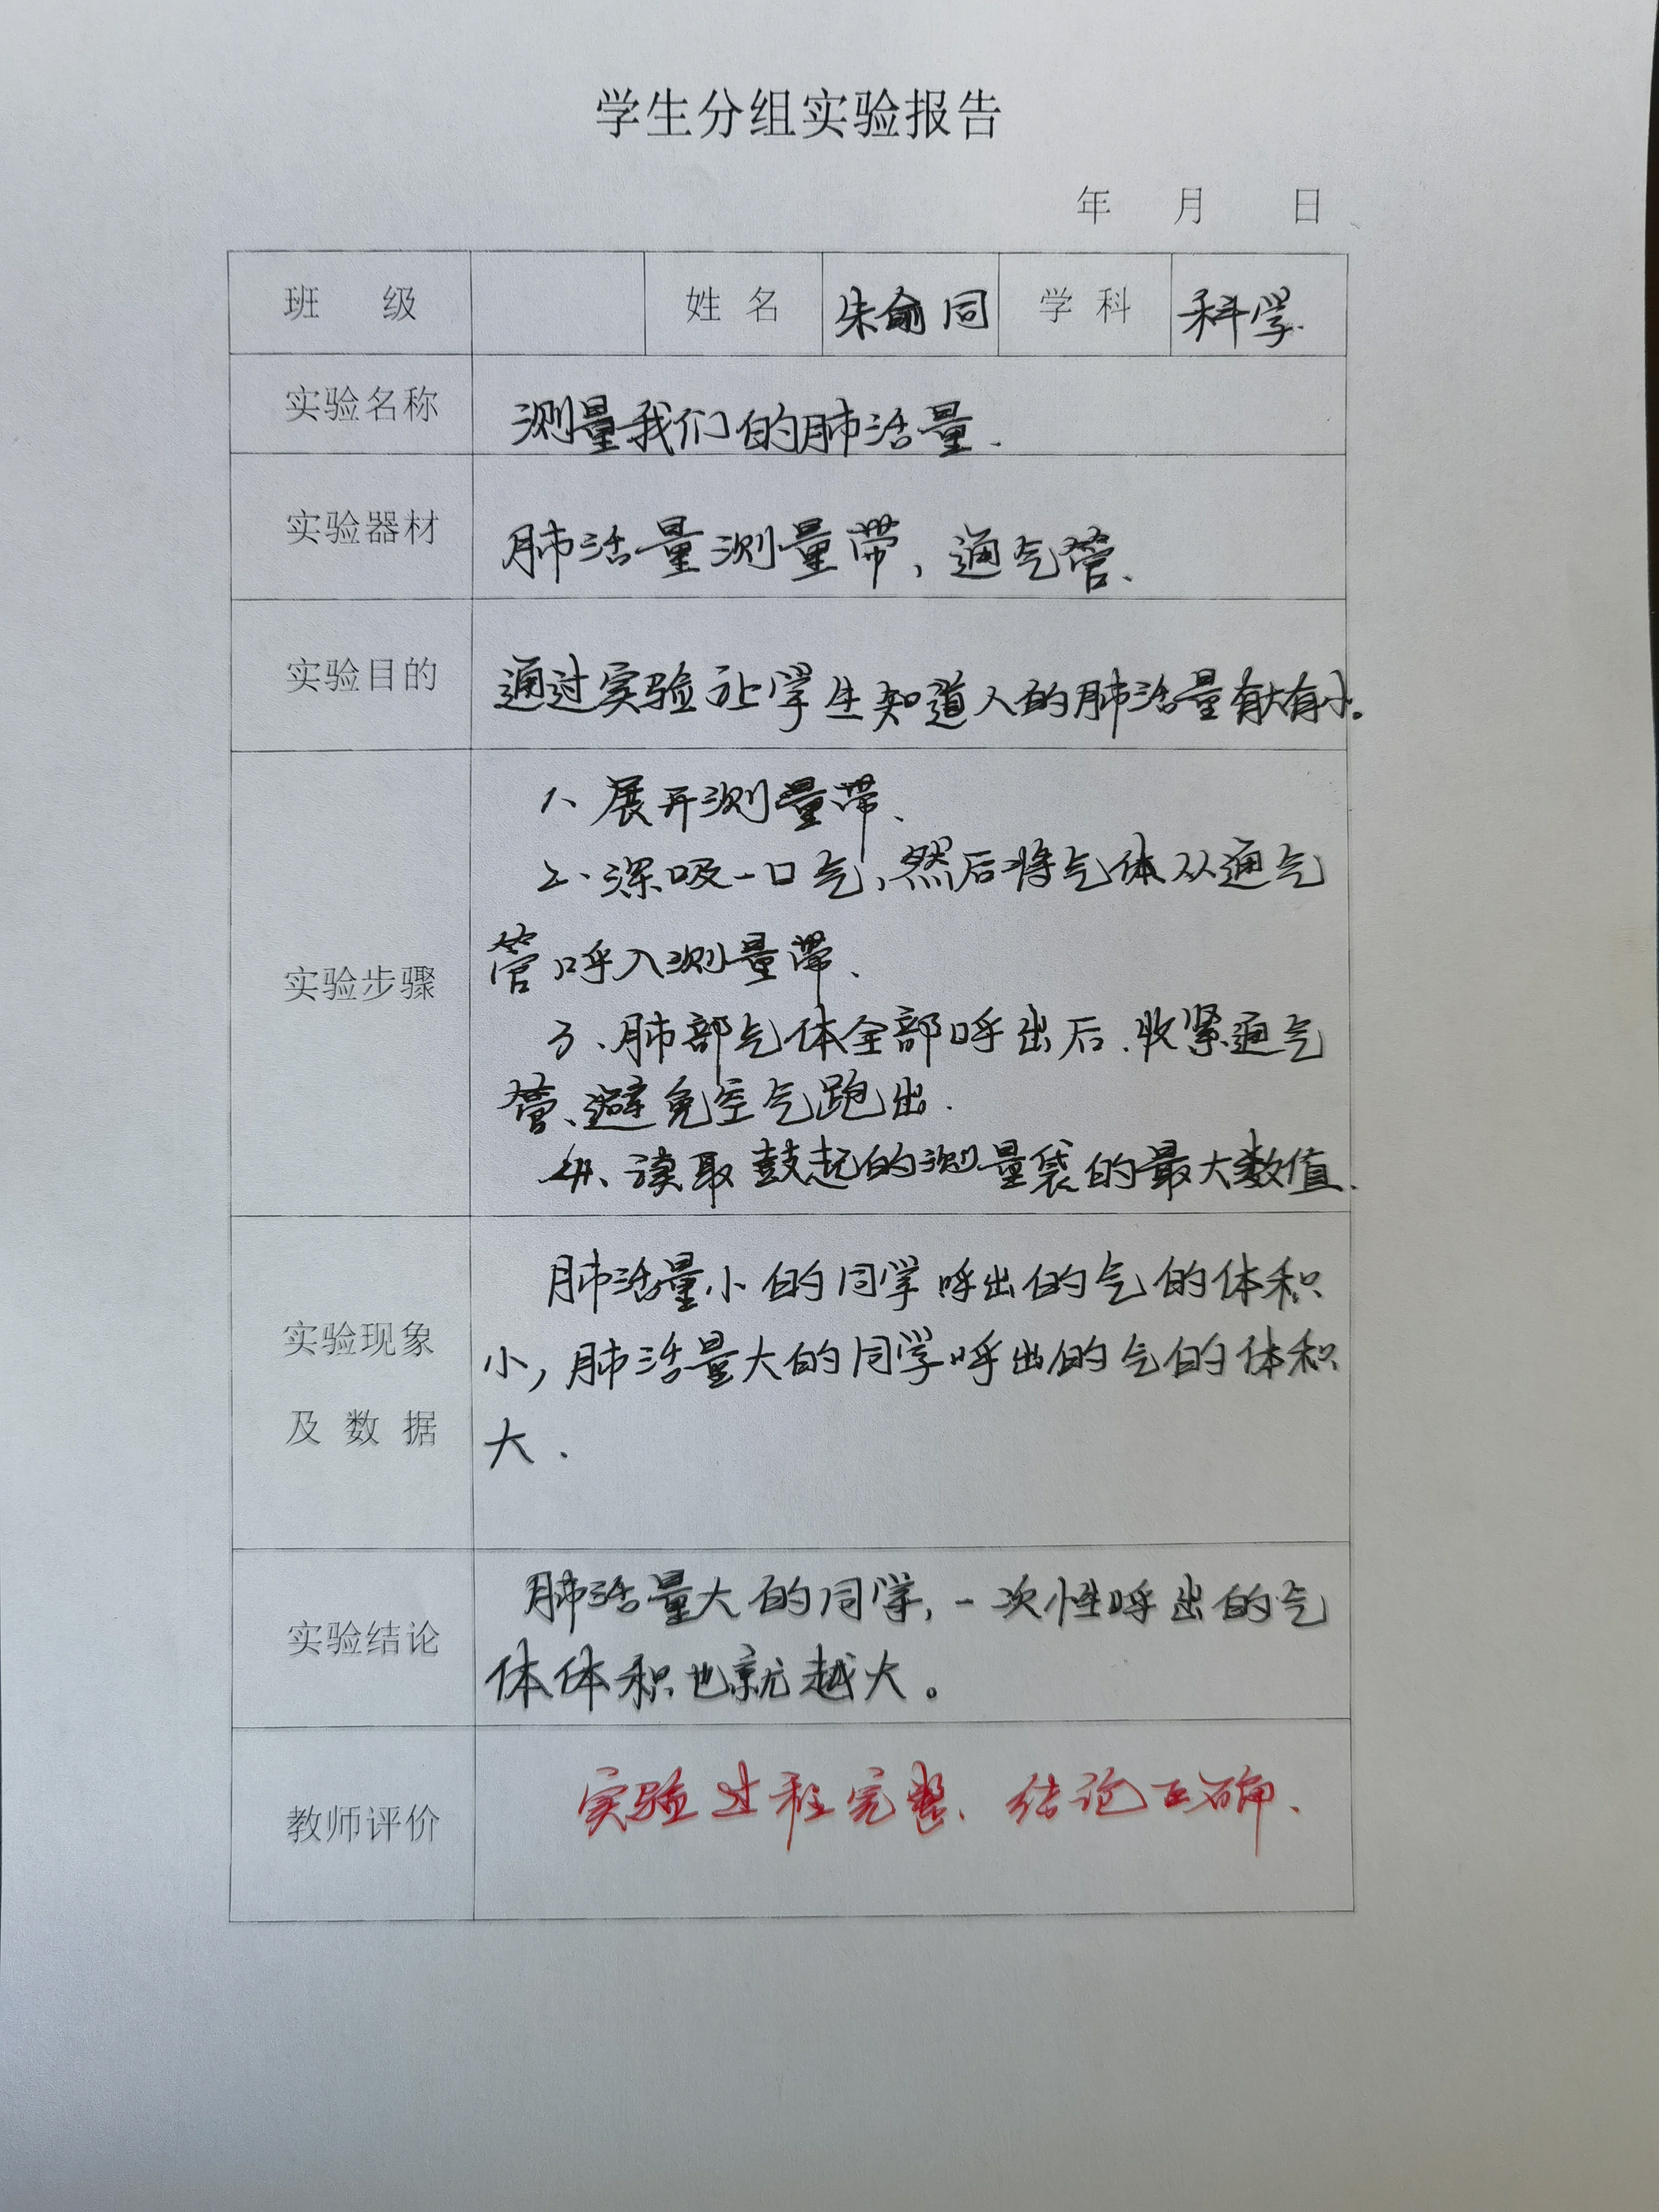 学生分组实验报告
年 月 日
班 级 姓 名 朱俞同 学 科 科学.
实验名称 测量我们的肺活量.
实验器材 肺活量测量带,通气管、
实验目的 通过实验让学生知道人的肺活量有大有小。
实验步骤
1、展开测量带、
2、深吸一口气,然后将气体从通气
管呼入测量带、
3、肺部气体全部呼出后、收紧通气
管、避免空气跑出.
4、读取鼓起的测量袋的最大数值.
实验现象
及 数 据
肺活量小的同学呼出的气的体积
小,肺活量大的同学呼出的气的体积
大.
实验结论
肺活量大的同学,一次性呼出的气
体体积也就越大。
教师评价 实验过程完整、结论正确、